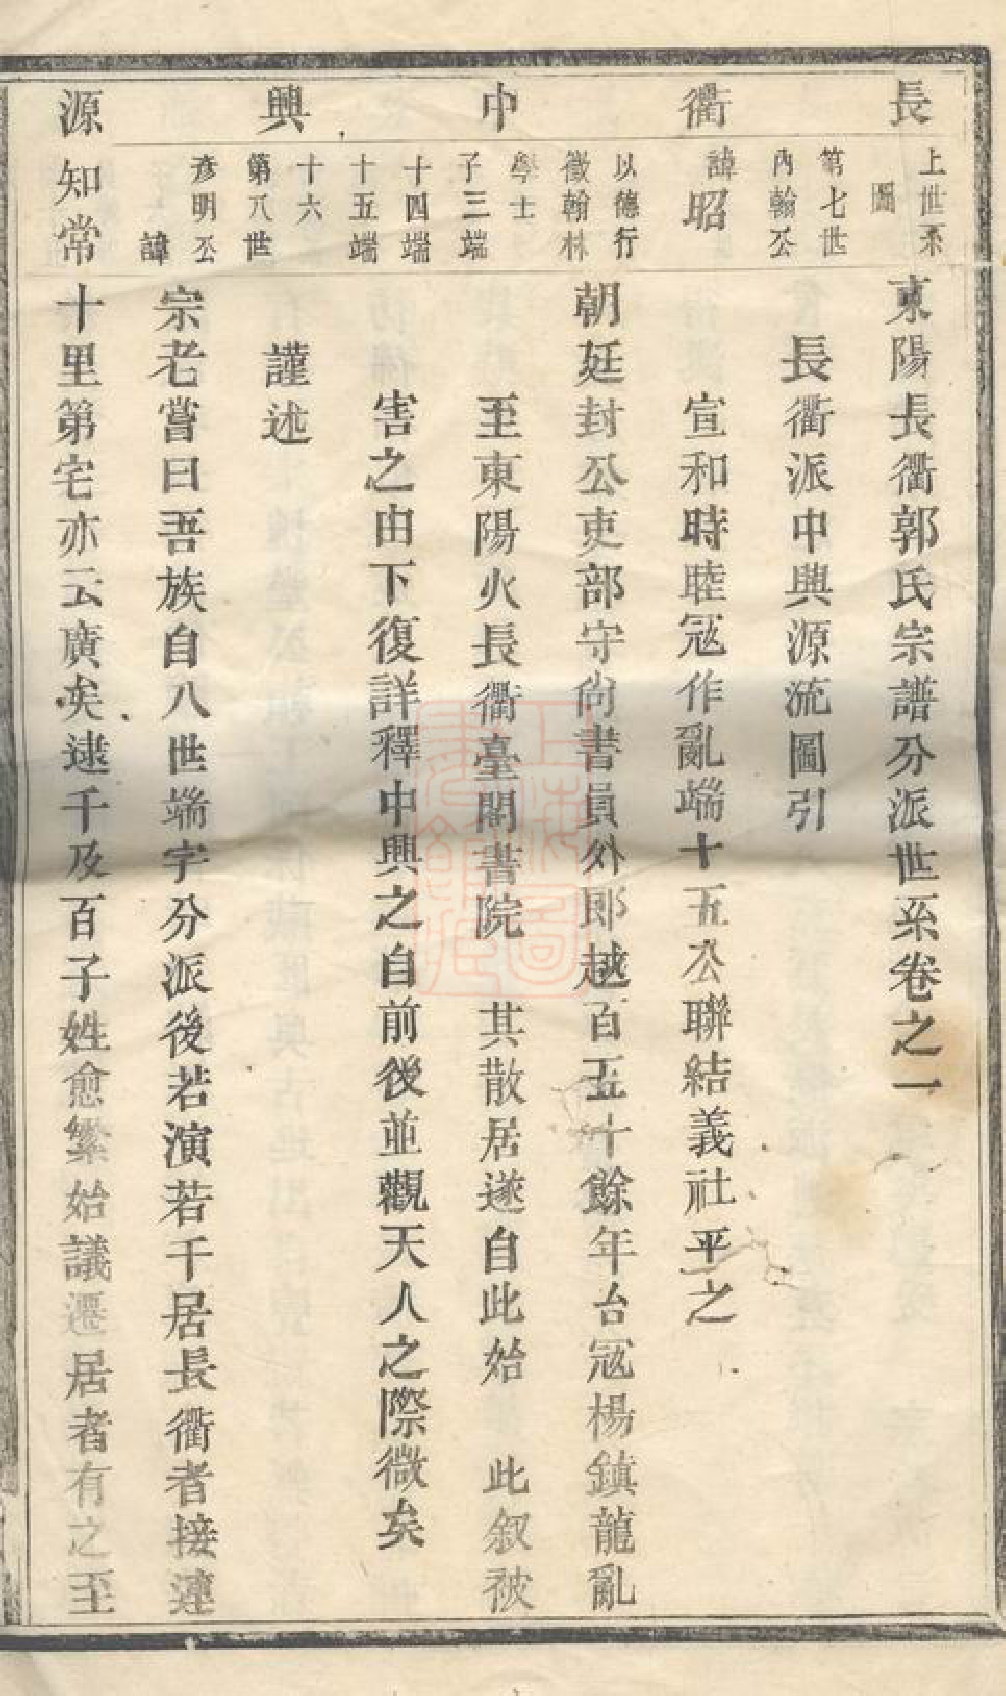 長衢中興源
上世系
圖
第七世
內翰公
諱昭
以德行
徵翰林
學士
子三端
十四端
十五端
十六
第八世
彦明公
諱
知常
東陽長衢郭氏宗譜分派世系卷之一
長衢派中興源流圖引
宣和時睦冦作亂端十五公聯結義社平之
朝廷封公吏部守尚書員外郎越百五十餘年台冦楊鎮龍亂
至東陽火長衢臺閣書院 其散居遂自此始 此叙被
害之由下復詳釋中興之自前後並觀天人之際微矣
謹述
宗老嘗曰吾族自八世端字分派後若演若千居長衢者接連
十里第宅亦云廣矣逮千及百子姓愈繁始議遷居者有之至